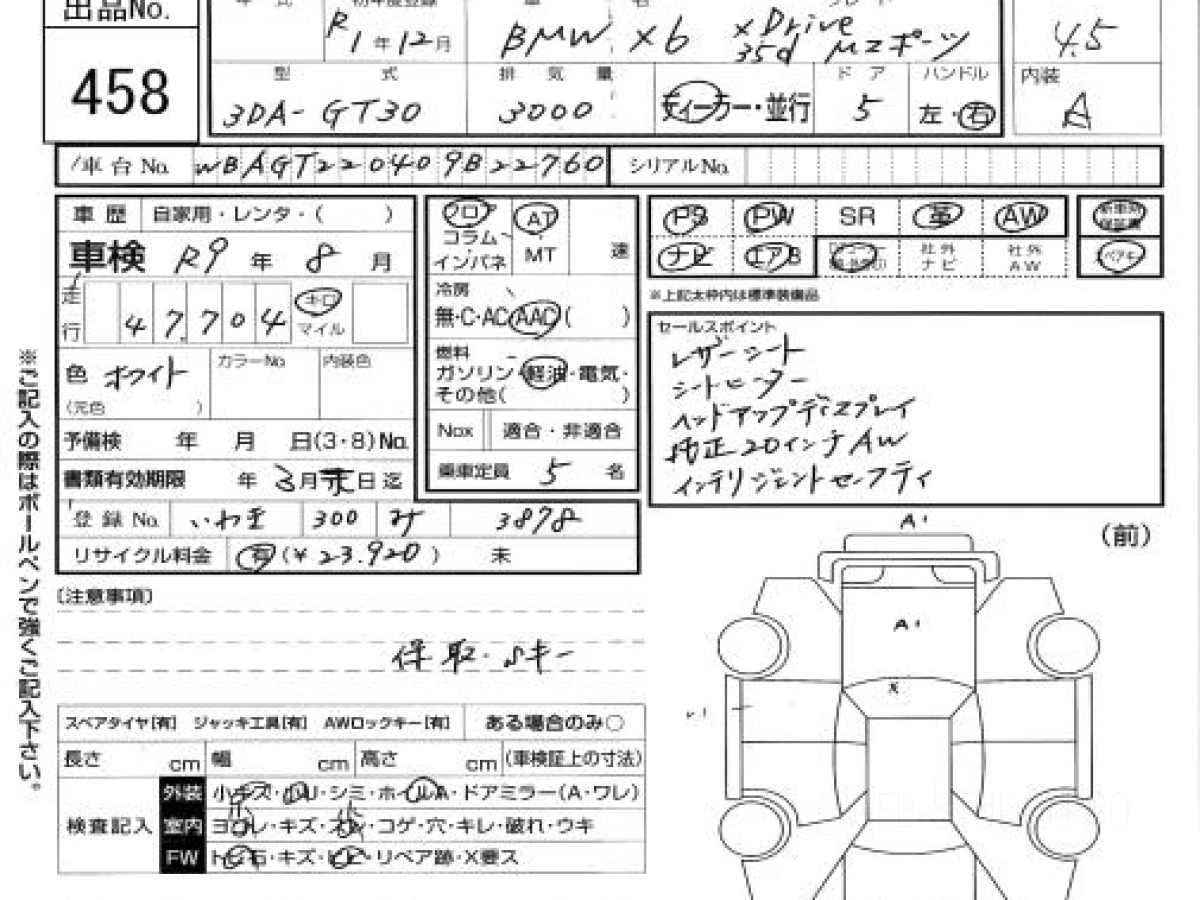 出品No.
458
年 式 初年度登録 車 名 グレード
R1年12月 BMW X6 xDrive 35d Mスポーツ 4.5
型 式 排 気 量 ドア ハンドル 内装
3DA-GT30 3000 ディーラー・並行 5 左・右 A
車台No. WBAGT220409B22760 シリアルNo.
車歴 自家用・レンタ・( )
車検 R9年 8月
走行 47,704 キロ マイル
色 ホワイト カラーNo. 内装色
(元色 )
予備検 年 月 日(3・8)No.
書類有効期限 年 3月末日迄
登録No. いわき 300 み 3878
リサイクル料金 有(¥23.920) 未
フロア AT 速
コラム MT
インパネ
冷房
無・C・AC・AAC( )
燃料
ガソリン・軽油・電気・
その他( )
Nox 適合・非適合
乗車定員 5 名
PS PW SR 革 AW
ナビ エアB 社外ナビ 社外AW
※上記太枠内は標準装備品
セールスポイント
レザーシート
シートヒーター
ヘッドアップディスプレイ
純正20インチAW
インテリジェントセーフティ
※ご記入の際はボールペンで強くご記入下さい。
(注意事項)
保取.Sキー
スペアタイヤ[有] ジャッキ工具[有] AWロックキー[有] ある場合のみ○
長さ cm 幅 cm 高さ cm (車検証上の寸法)
検査記入
外装 小キズ・小U・シミ・ホイルA・ドアミラー(A・ワレ)
室内 ヨゴレ・キズ・スレ・コゲ・穴・キレ・破れ・ウキ
FW トビ石・キズ・ヒビ・リペア跡・X要ス
(前)
A1
A1
X